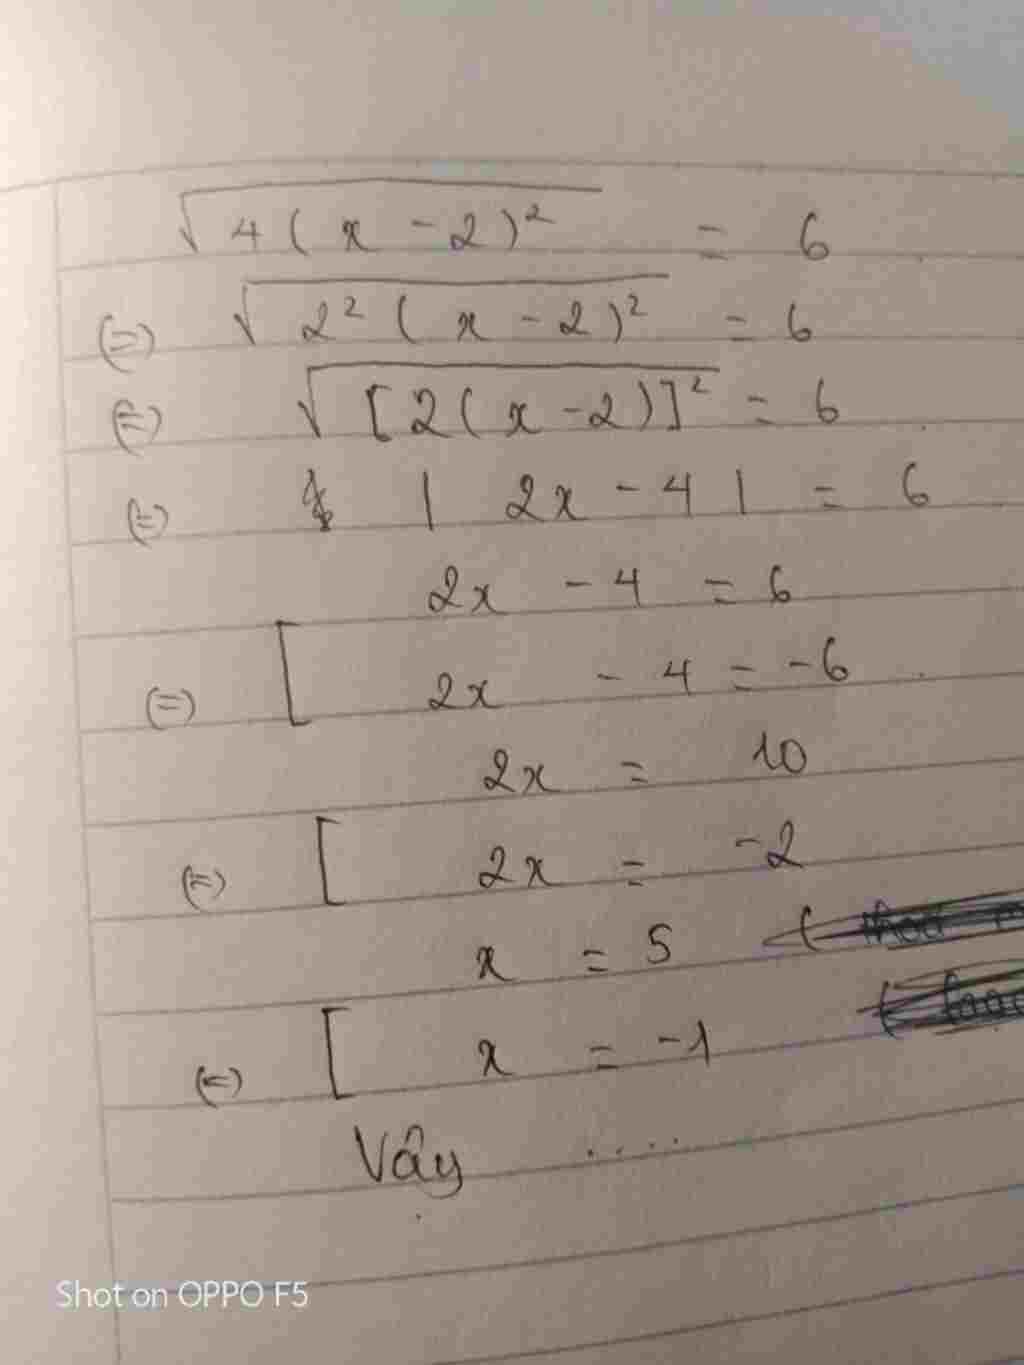 √4(x-2)² = 6
(=) √2²(x-2)² = 6
(=) √[2(x-2)]² = 6
(=) |2x-4| = 6
2x - 4 = 6
(=) [ 2x - 4 = -6
2x = 10
(=) [ 2x = -2
x = 5
(=) [ x = -1
Vây .....
Shot on OPPO F5